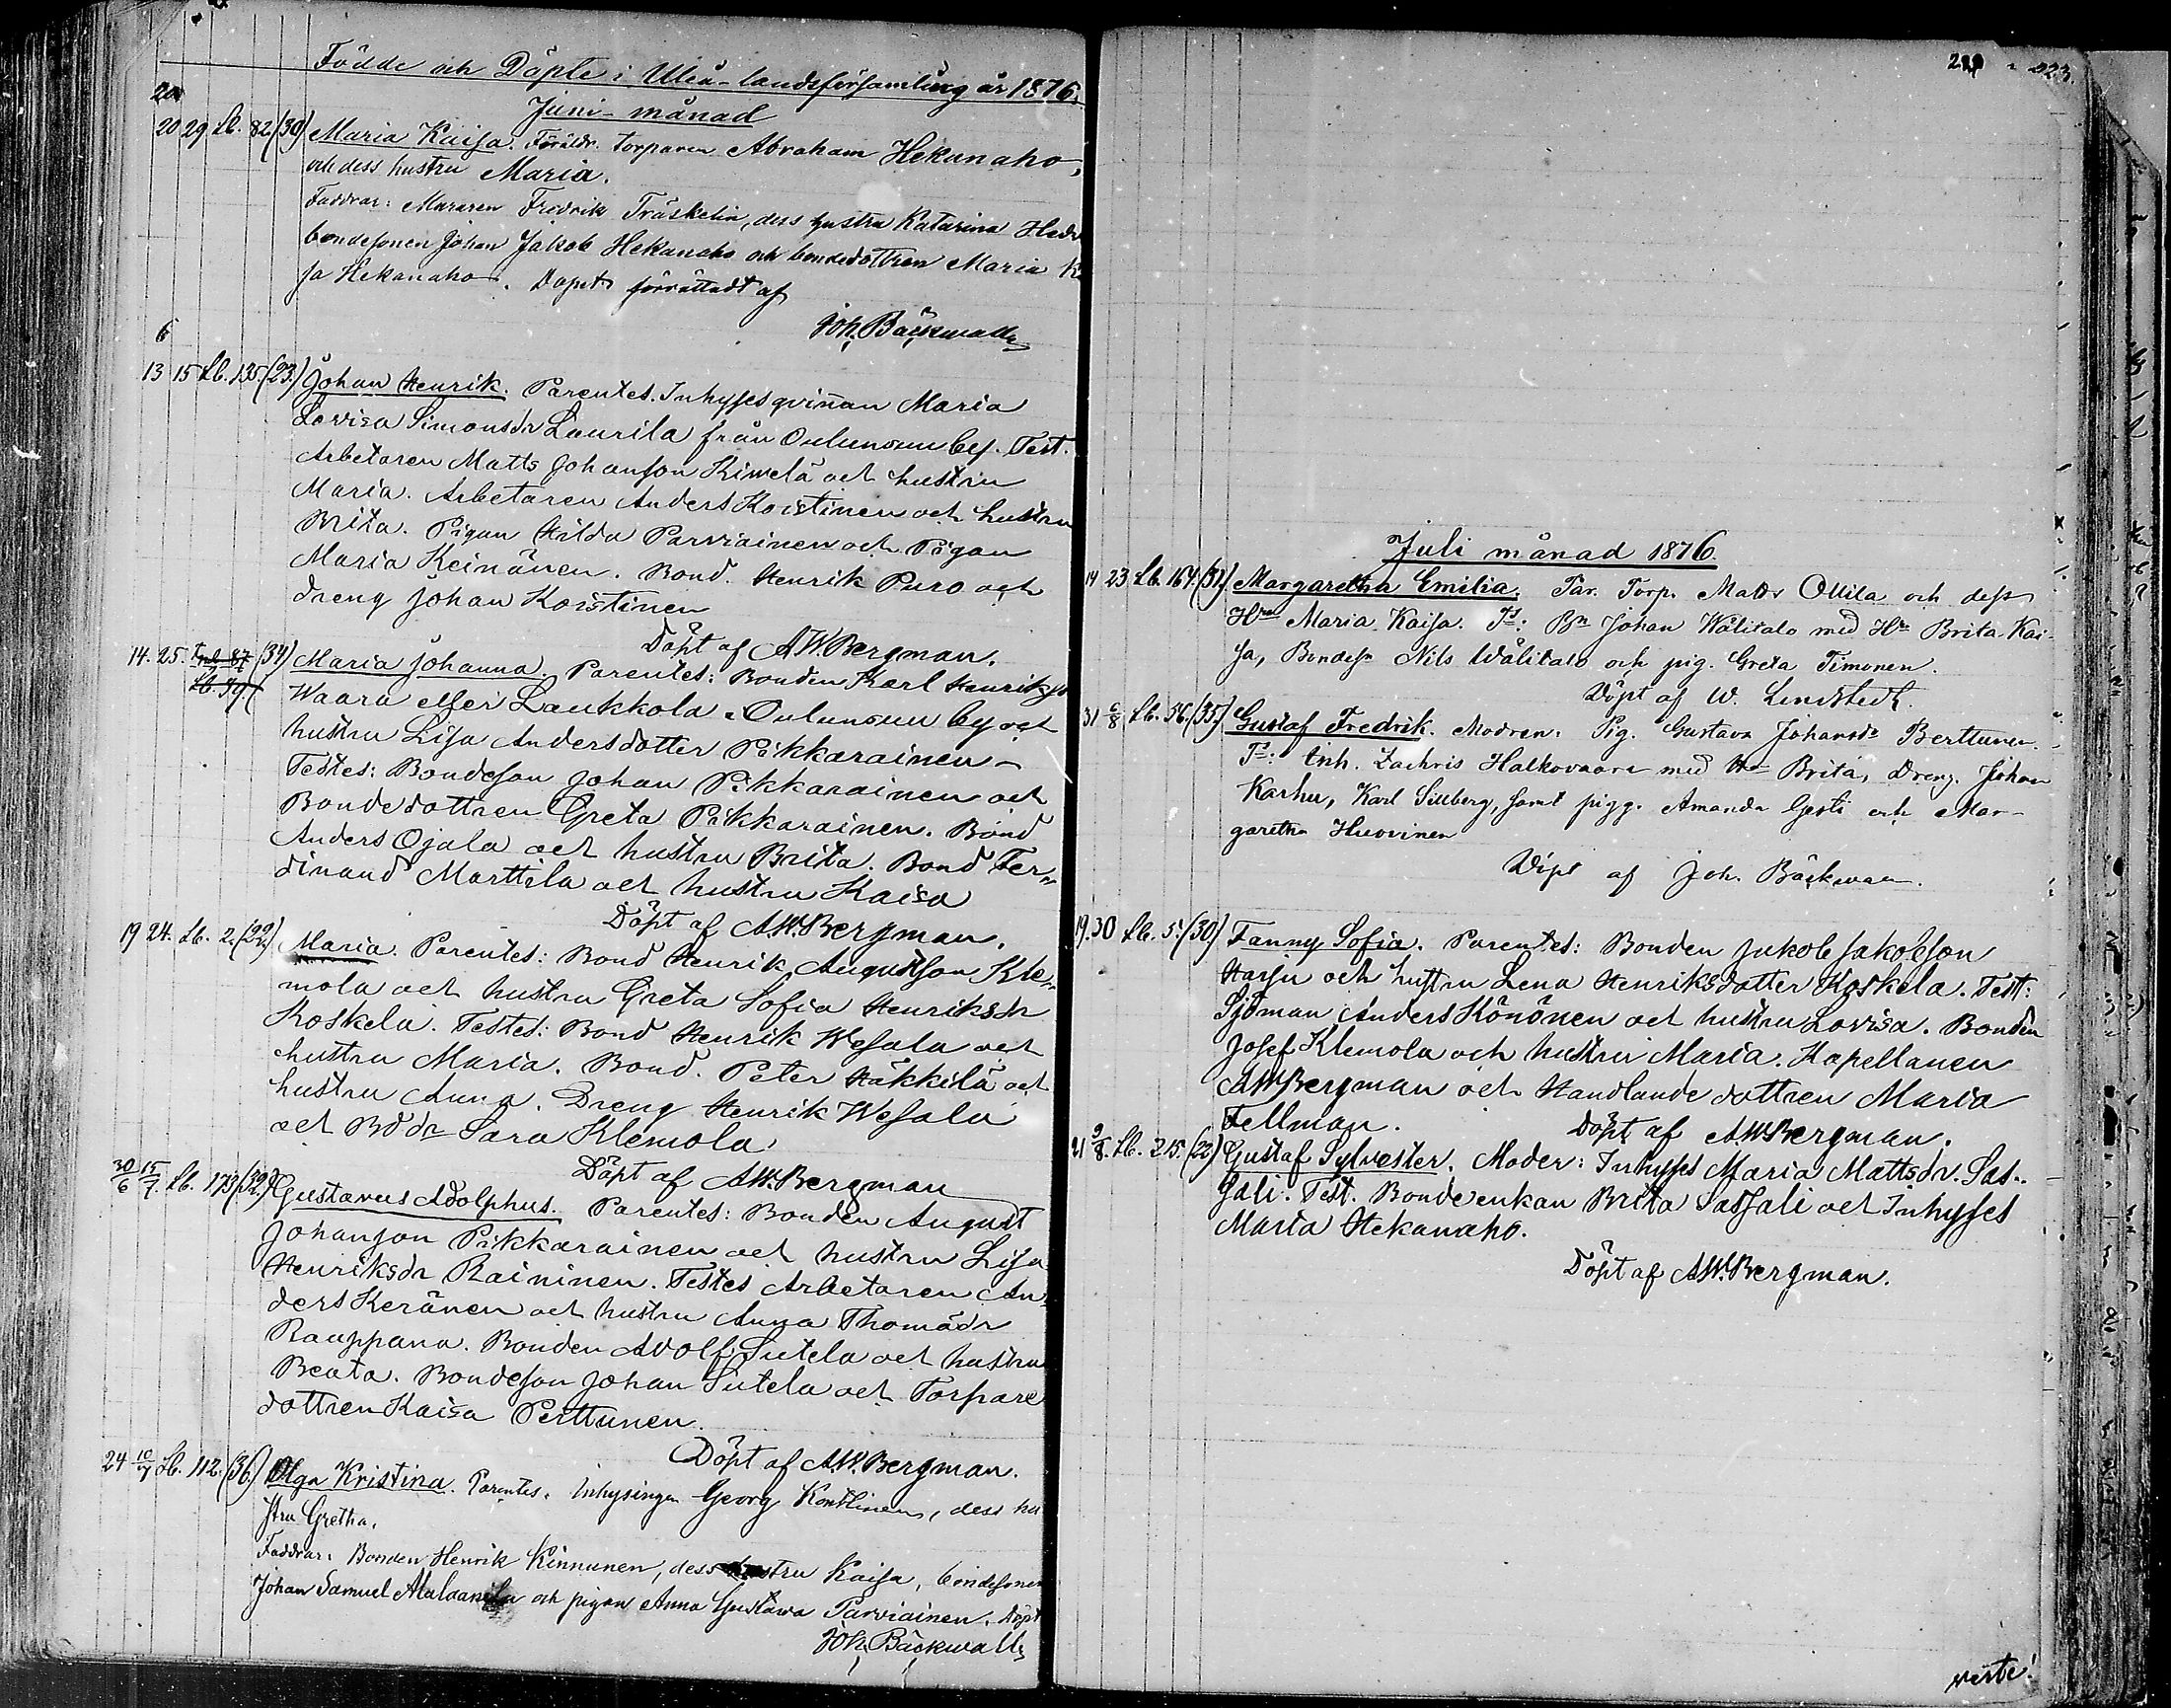 Födde och Döpte i Uleå-landsförsamling år 1876.
Juni-månad
20 29 Lb. 82 (30) Maria Kaisa. Föräldr. torparen Abraham Hekanaho,
och dess hustru Maria.
Faddrar: Muraren Fredrik Träskelin, dess hustru Katarina Hedv
bondesonen Johan Jakob Hekanaho och bondedottren Maria K
sa Hekanaho. Dopet förrättadt af
Joh. Bäckwall
6
13 15 Lb. 135. (23.) Johan Henrik. Parentes. Inhyses qvinnan Maria
Lovisa Simonsdr Laurila från Oulunsuu by. Test.
Arbetaren Matts Johansson Kiwelä och hustru
Maria. Arbetaren Anders Koistinen och hustru
Brita. Pigan Hilda Parviainen och Pigan
Maria Keinänen. Bond. Henrik Puro och
dreng Johan Koistinen
Döpt af AWBergman.
14. 25. (34) Maria Johanna. Parentes: Bonden Karl Henriks
Waara eller Laukkola i Oulunsuu by och
hustru Lisa Andersdotter Pikkarainen
Testes: Bondeson Johan Pikkarainen och
Bondedottren Greta Pikkarainen. Bond
Anders Ojala och hustru Brita. Bond Fer-
dinand Marttila och hustru Kaisa
Döpt af AW.Bergman.
19 24. Lb. 2. (29) Maria. Parentes: Bond Henrik Augustsson Kle-
mola och hustru Greta Sofia Henriksdr
Koskela. Testes: Bond Henrik Wesala och
hustru Maria. Bond. Peter Häkkilä och
hustru Anna. Dreng Henrik Wesala
och Bddr Sara Klemola.
Döpt af AW.Bergman
30/6 15/7. Lb. 173 (32.) Gustavus Adolphus. Parentes: Bonden August
Johansson Pikkarainen och hustru Lisa
Henriksdr Raininen. Testes Arbetaren An-
ders Keränen och hustru Anna Thomädr
Rauppana. Bonden Adolf Sutela och hustru
Beata. Bondeson Johan Sutela och Torpare
dottren Kaisa Perttunen.
Döpt af A.W.Bergman.
24 10/7 Lb. 112. (36.) Olga Kristina. Parentes. Inhysingen Georg Konttinen, dess hu
stru Gretha.
Faddrar: Bonden Henrik Kinnunen, dess hustru Kaisa, bondesonen
Johan Samuel Alalaanila och pigan Anna Gustawa Parviainen. Döpt
Joh. Bäckwall
223.
Juli månad 1876
14 23 Lb. 164. (31) Margaretha Emilia. Par. Torp. Matts Ollila och dess
Hru Maria Kaisa. Ts: Bn Johan Wälitalo med Hu Brita Kai-
sa, Bondesn Nils Wälitalo och pig. Greta Timonen.
Döpt af W. Lindstedt.
31 6/8 Lb. 56. (35) Gustaf Fredrik. Modren: Pig. Gustava Johansdr Berttunen.
Ts: Inh. Zachris Halkovaara med Hu Brita, Dreng. Johan
Karhu, Karl Sillberg, samt pigg. Amanda Gesti och Mar-
garetha Huovinen
Döpt af Joh. Bäckwall.
19. 30 Lb. 5. (30) Fanny Sofia. Parentes: Bonden Jakob Jakobson
Harju och hustru Lena Henriksdotter Koskela. Test:
Sjöman Anders Könönen och hustru Lovisa. Bonden
Josef Klemola och hustru Maria. Kapellanen
AWBergman och Handlande dottren Maria
Fellman. Döpt af AWBergman.
21 9/8. Lb. 215. (22) Gustaf Sylvester. Moder: Inhyses Maria Mattsdr. Sas-
sali. Test. Bondeenkan Brita Sassali och Inhyses
Maria Hekanaho.
Döpt af AW.Bergman.
verte!